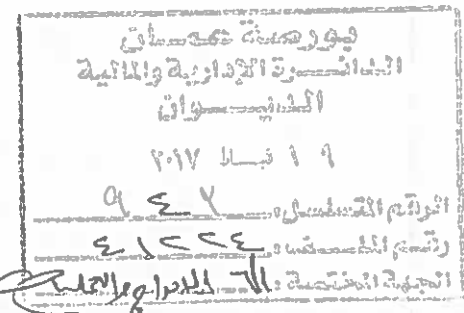 بورصة عمان
الدائرة الإدارية والمالية
الديوان
١٩ شباط ٢٠١٧
الرقم المتسلسل: ٩٤٧
رقم الملف: ٤١٢٢٤
الجهة المختصة: